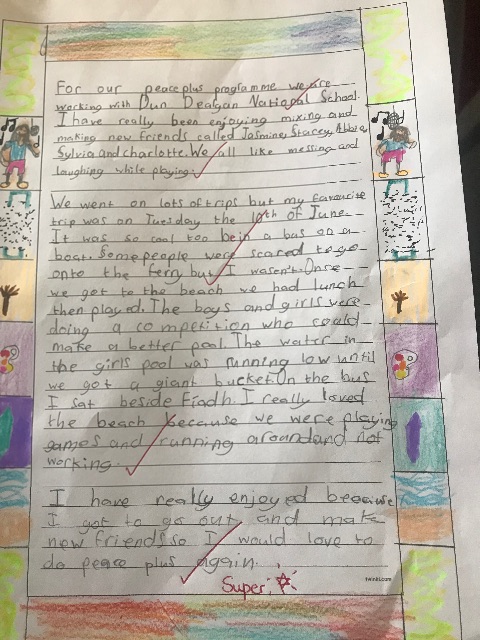 For our peaceplus programme we are
working with Dun Dealgan National School.
I have really been enjoying mixing and
making new friends called Jasmine, Stacey, Abbie,
Sylvia and charlotte. We all like messing and
laughing while playing.
We went on lots of trips but my favourise
trip was on Tuesday the 10th of June.
It was so cool too be in a bus on a
boat. Some people were scared to go
onto the ferry but I wasn't. Once
we got to the beach we had lunch
then played. The boys and girls were
doing a competition who could
make a better pool. The water in
the girls pool was running low until
we got a giant bucket. On the bus
I sat beside Fiadh. I really loved
the beach because we were playing
games and running around and not
working.
I have really enjoyed because
I got to go out and make
new friends so I would love to
do peace plus again.
Super
twinkl.com